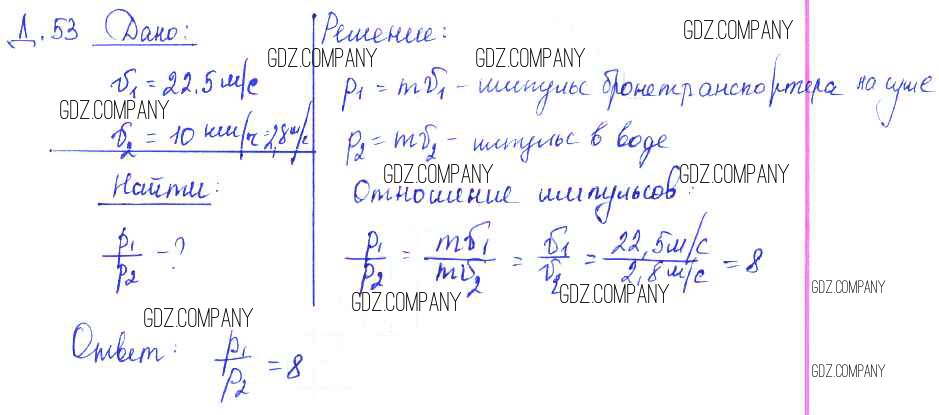 Д.53 Дано:
υ₁ = 22,5 м/с
υ₂ = 10 км/ч = 2,8 м/с
Найти:
p₁/p₂ - ?
Решение:
p₁ = mυ₁ - импульс бронетранспортера на суше
p₂ = mυ₂ - импульс в воде
Отношение импульсов:
p₁/p₂ = mυ₁/mυ₂ = υ₁/υ₂ = 22,5 м/с / 2,8 м/с = 8
Ответ: p₁/p₂ = 8
GDZ.COMPANY
GDZ.COMPANY
GDZ.COMPANY
GDZ.COMPANY
GDZ.COMPANY
GDZ.COMPANY
GDZ.COMPANY
GDZ.COMPANY
GDZ.COMPANY
GDZ.COMPANY
GDZ.COMPANY